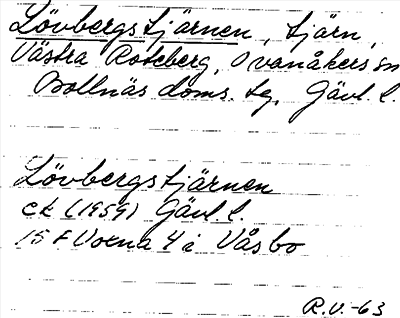 Lövbergstjärnen, tjärn,
Västra Roteberg, Ovanåkers sn
Bollnäs doms. tg, Gävl. l.
Lövbergstjärnen
ek (1959) Gävl. l.
15 F Voxna 4 i Våsbo
R.V. -63